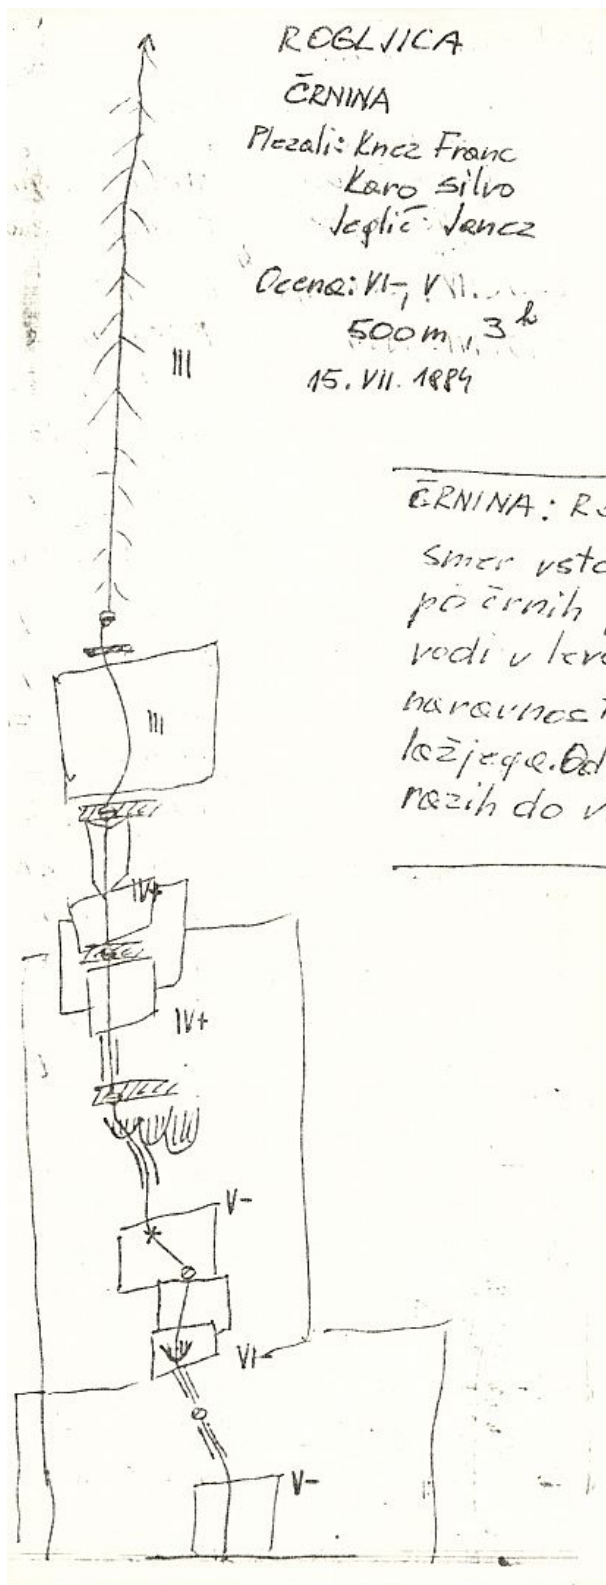 ROGLJICA
ČRNINA
Plezali: Knez Franc
Karo Silvo
Jeglič Janez
Ocena: VI-, V
500m, 3h
15. VII. 1984
III
ČRNINA:
smer
po črnih
vodi v
naravnost
lažjega. Od
do
III
IV+
IV+
V-
VI-
V-